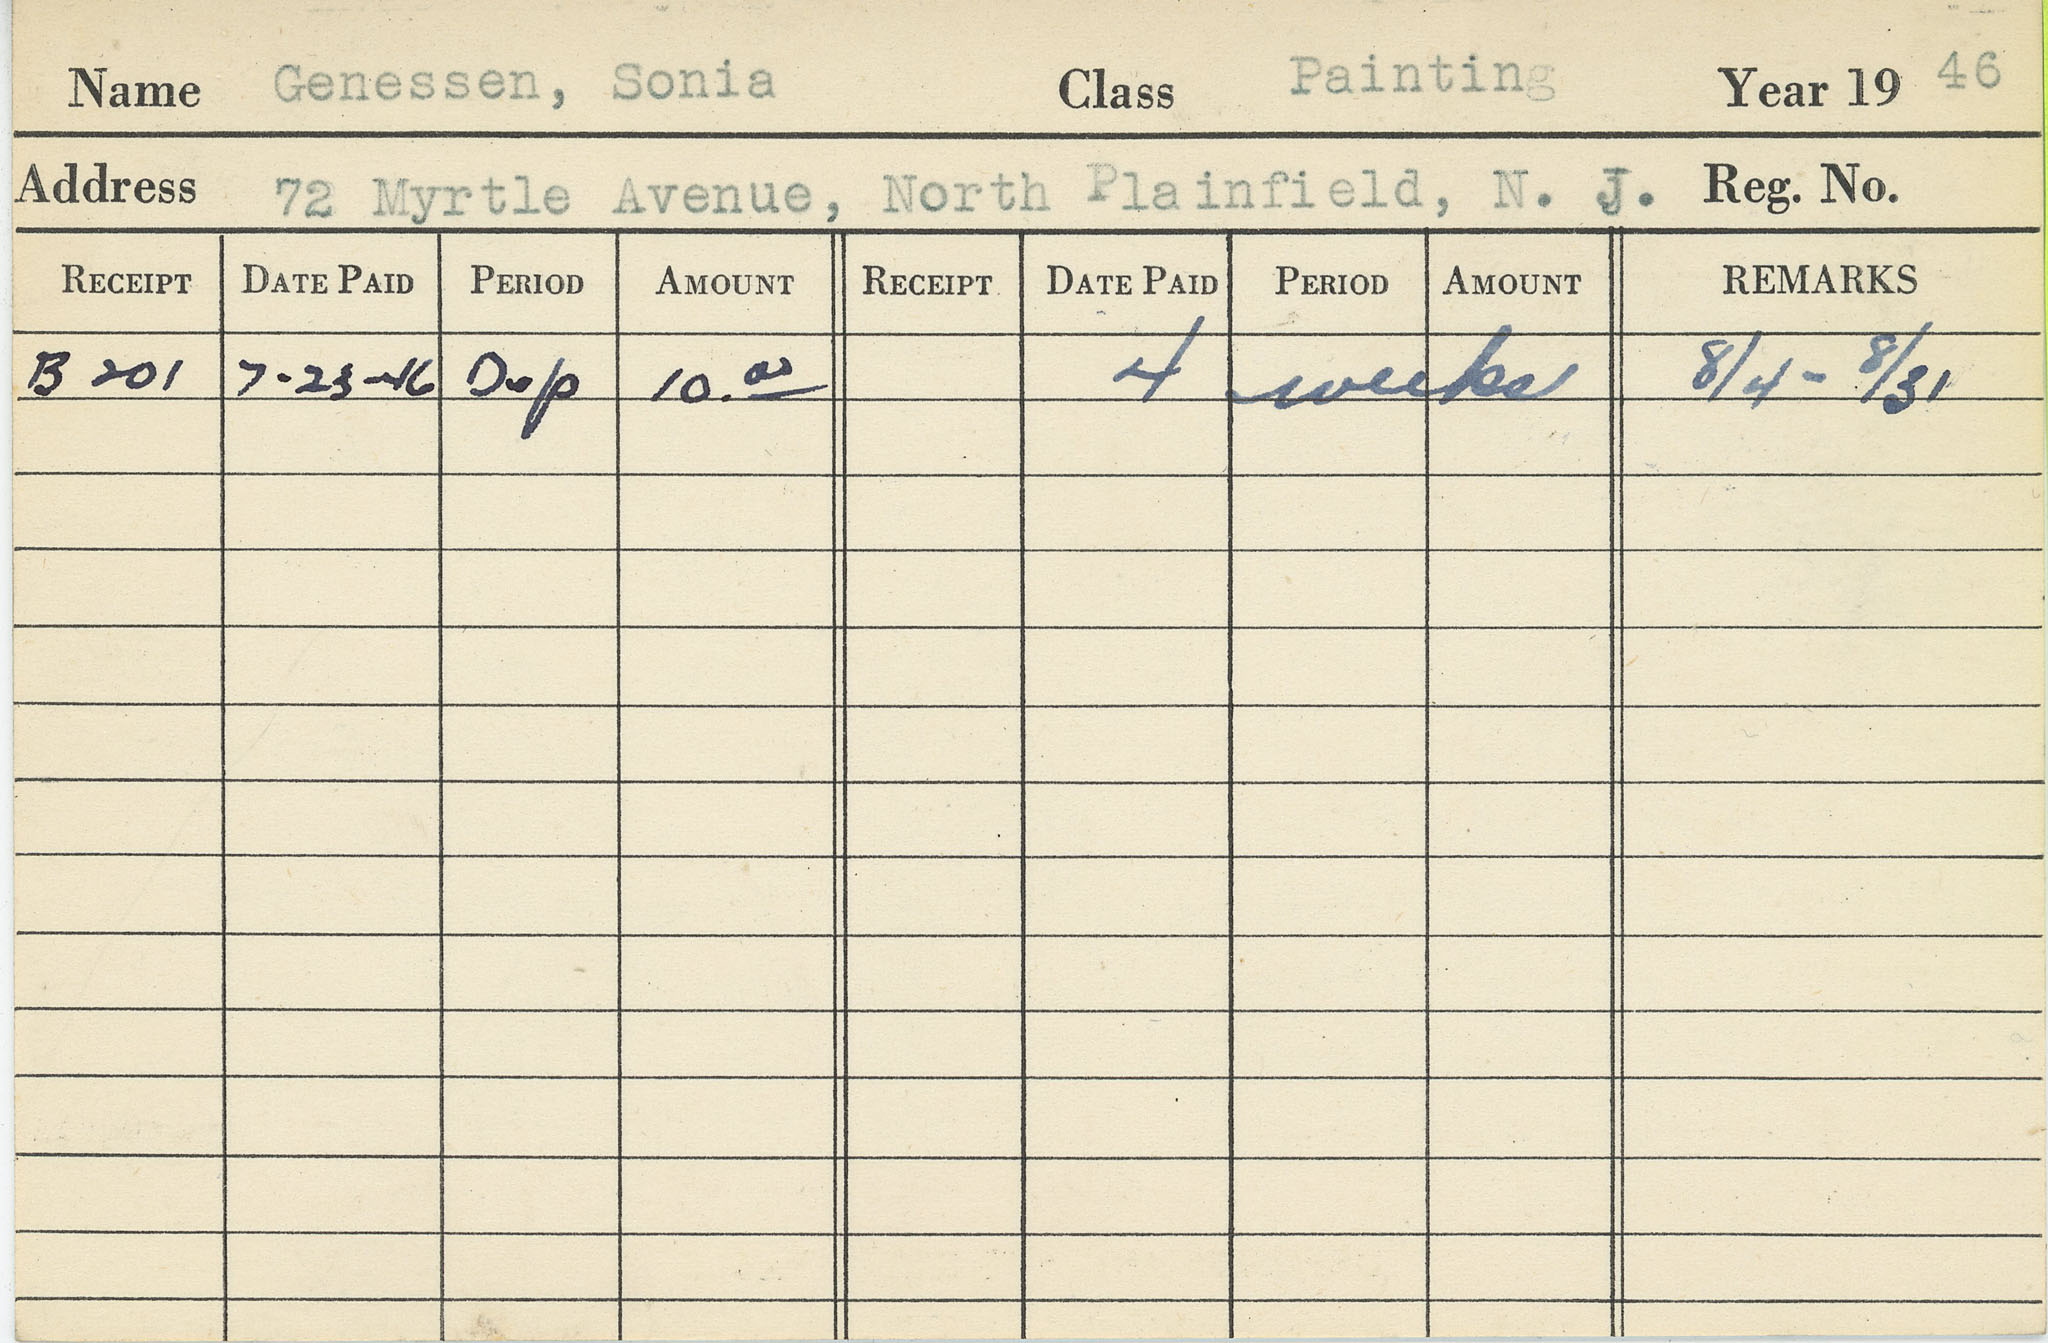 Name Genessen, Sonia Class Painting Year 19 46
Address 72 Myrtle Avenue, North Plainfield, N. J. Reg. No.
RECEIPT DATE PAID PERIOD AMOUNT RECEIPT DATE PAID PERIOD AMOUNT REMARKS
B 201 7-23-46 Dep 10.00 4 weeks 8/4 - 8/31